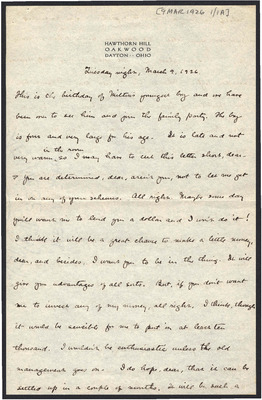 [9 MAR 1926 1/1A]
HAWTHORN HILL
OAKWOOD
DAYTON · OHIO
Tuesday night, March 9, 1926
This is the birthday of Milton's youngest boy and we have
been over to see him and join the family party. The boy
is five and very large for his age. It is late and not
very warm in the room, so I may have to cut this letter short, dear.
You are determined, dear, aren't you, not to let me get
in on any of your schemes. All right. Maybe some day
you'll want me to lend you a dollar and I won't do it!
I think it will be a great chance to make a little money,
dear, and besides, I want you to be in the thing. It will
give you advantages of all sorts. But, if you don't want
me to invest any of my money, all right. I think, though,
it would be sensible for me to put in at least ten
thousand. I wouldn't be enthusiastic unless the old
management goes on. I do hope, dear, that it can be
settled up in a couple of months. It will be such a